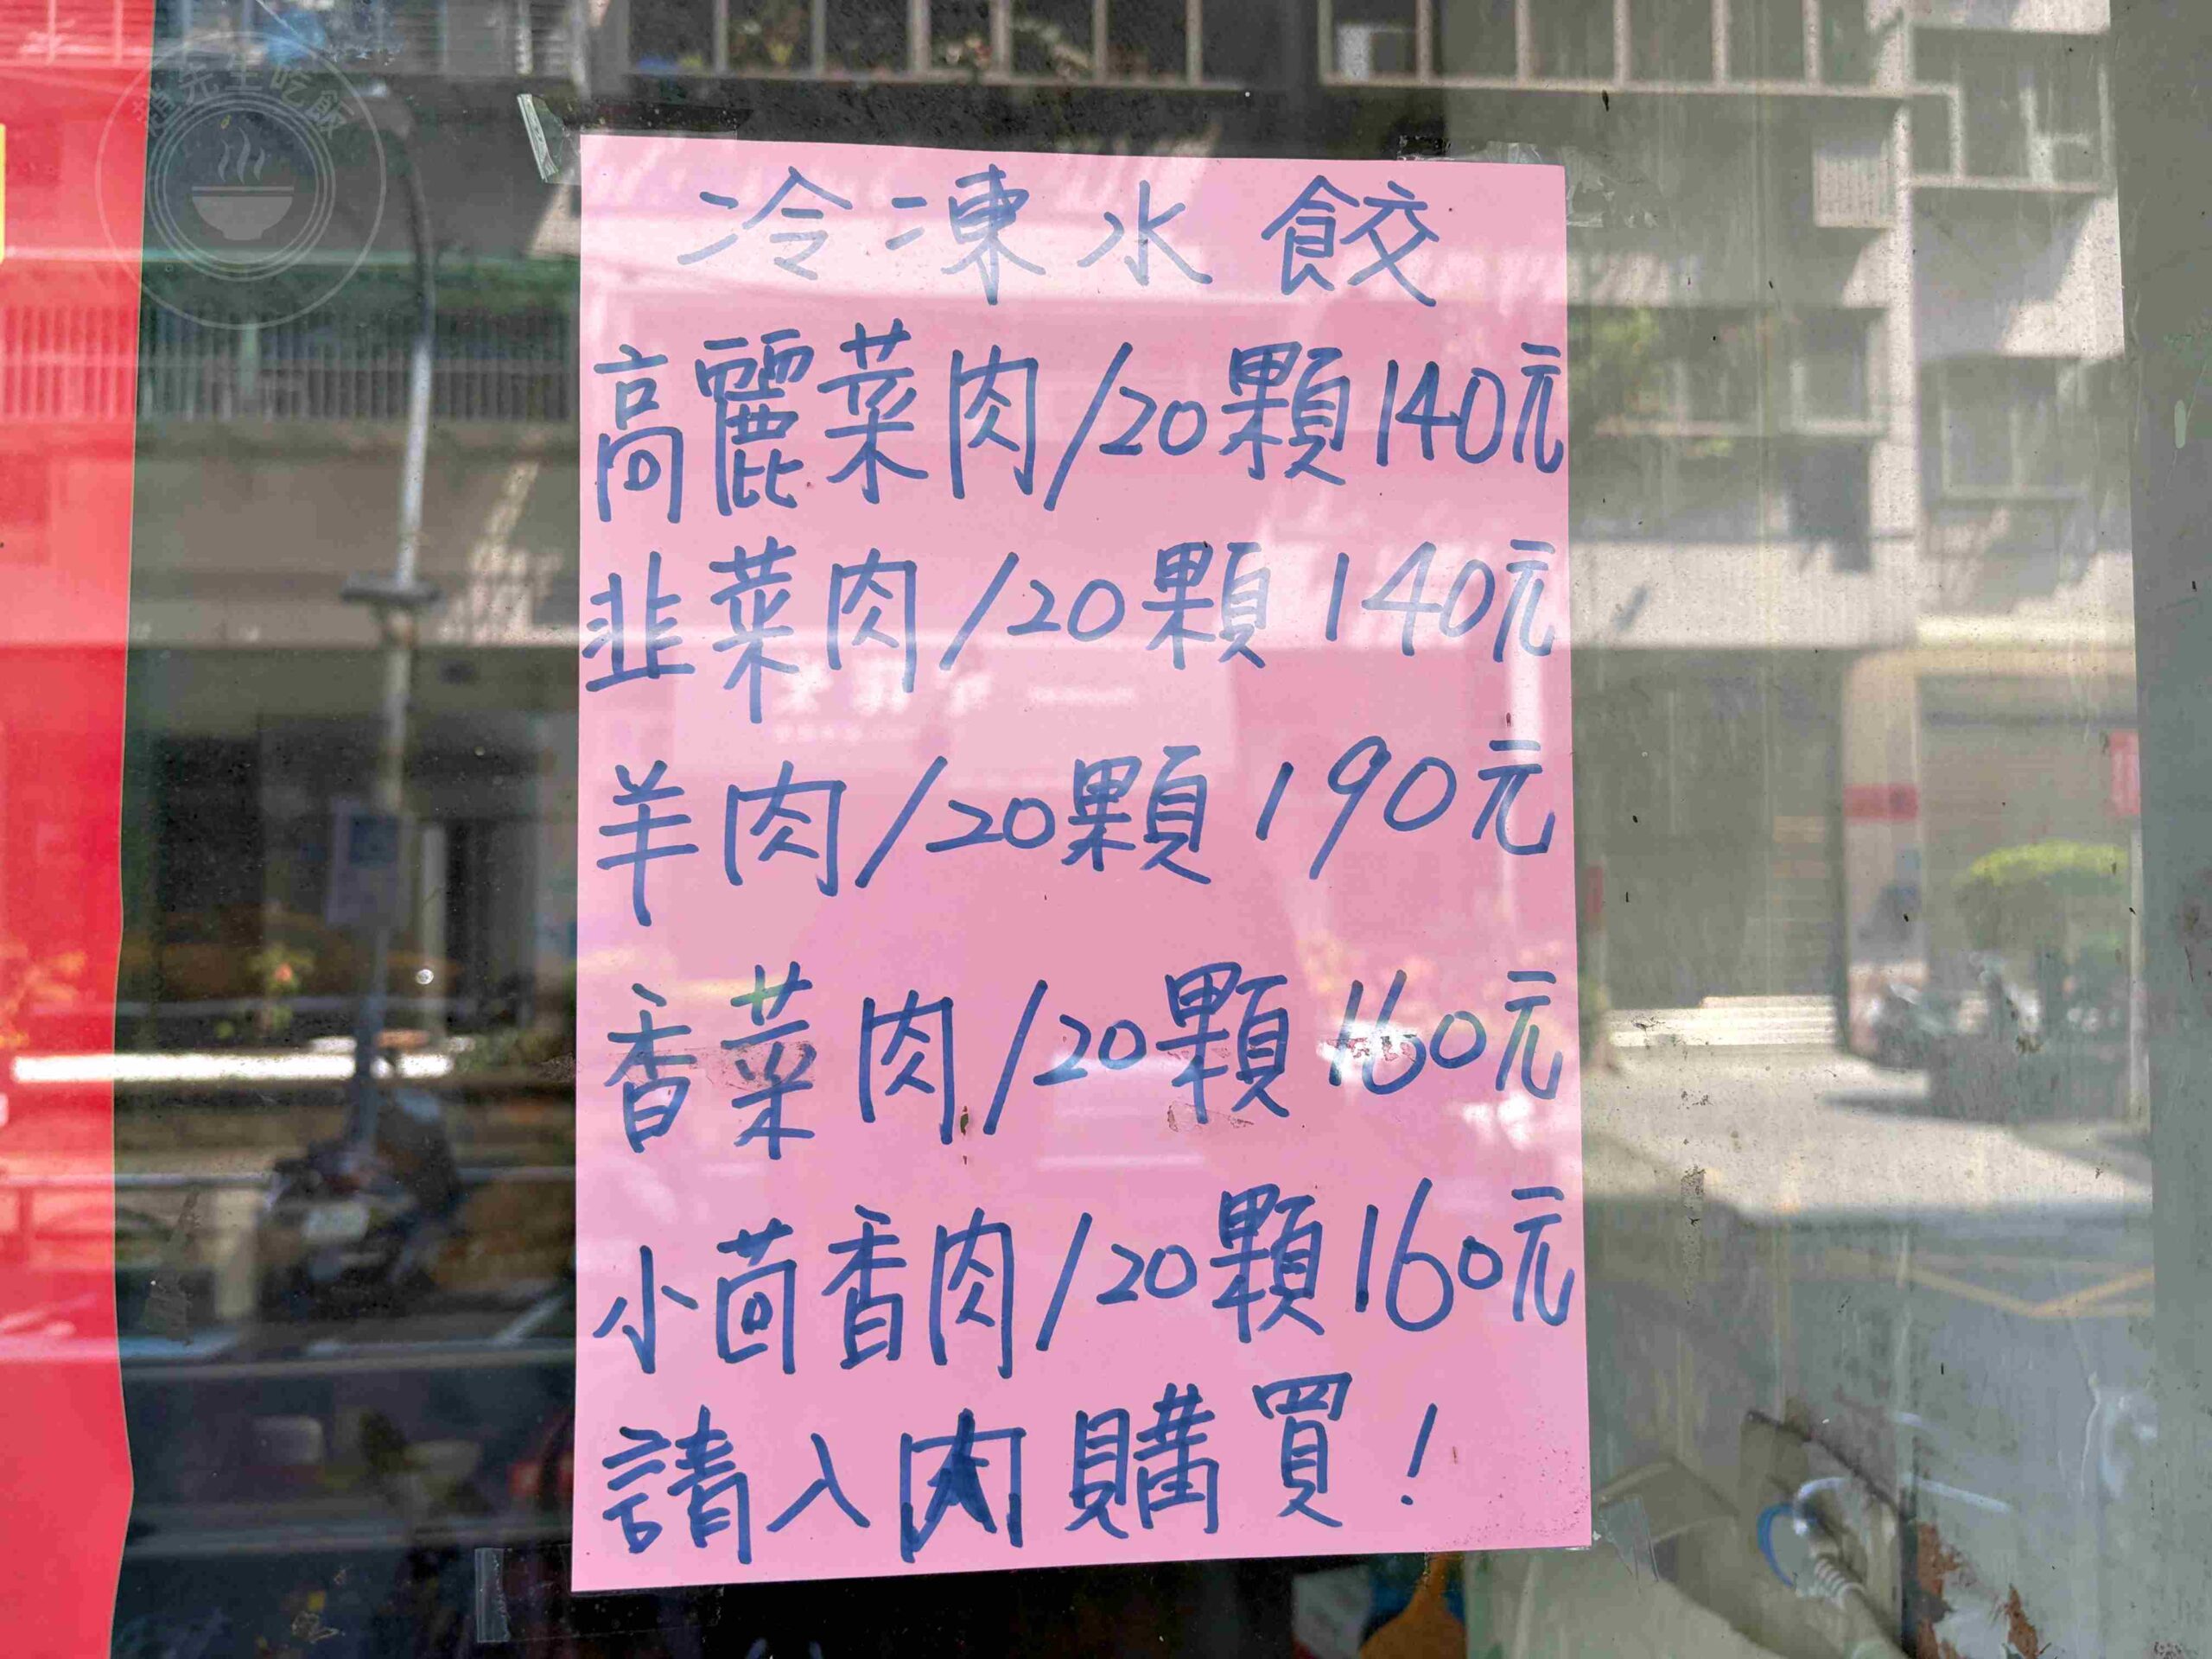 冷凍水餃
高麗菜肉/20顆140元
韭菜肉/20顆140元
羊肉/20顆190元
香菜肉/20顆160元
小茴香肉/20顆160元
請入內購買!